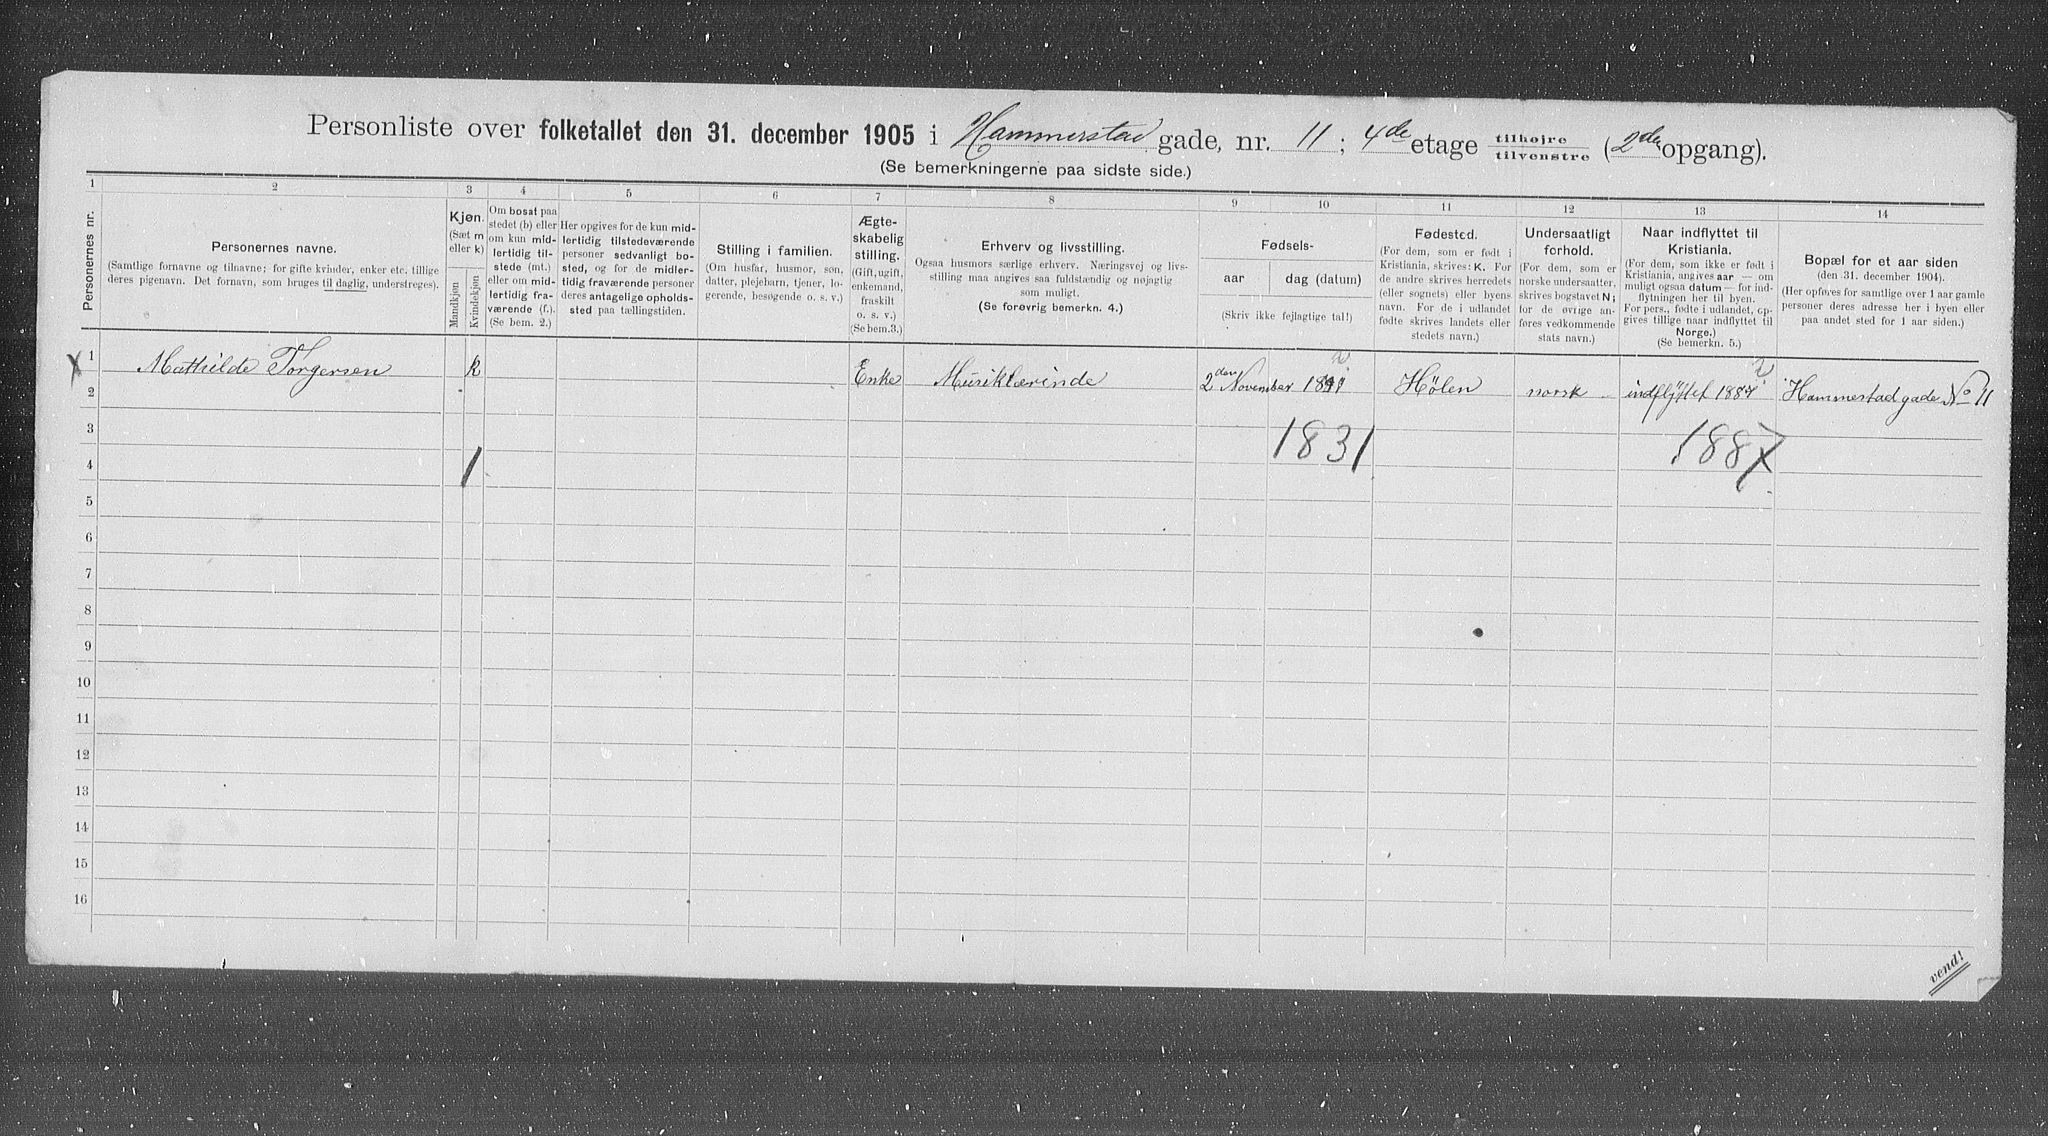 Personliste over folketallet den 31. december 1905 i Hammerstad gade, nr. 11; 4de etage tilhøjre tilvenstre (2den opgang).
(Se bemerkningerne paa sidste side.)
1 2 3 4 5 6 7 8 9 10 11 12 13 14
Personernes nr.
Personernes navne.
(Samtlige fornavne og tilnavne; for gifte kvinder, enker etc. tillige
deres pigenavn. Det fornavn, som bruges til daglig, understreges).
Kjøn.
(Sæt m
eller k)
Mandkjøn
Kvindekjøn
Om bosat paa
stedet (b) eller
om kun mid-
lertidig til-
stede (mt.)
eller om mid-
lertidig fra-
værende (f.).
(Se bem. 2.)
Her opgives for de kun mid-
lertidig tilstedeværende
personer sedvanligt bo-
sted, og for de midler-
tidig fraværende personer
deres antagelige opholds-
sted paa tællingstiden.
Stilling i familien.
(Om husfar, husmor, søn,
datter, plejebarn, tjener, lo-
gerende, besøgende o. s. v.)
Ægte-
skabelig
stilling.
(Gift, ugift,
enkemand,
fraskilt
o. s. v.)
(Se bem.3.)
Erhverv og livsstilling.
Ogsaa husmors særlige erhverv. Næringsvej og livs-
stilling maa angives saa fuldstændig og nøjagtig
som muligt.
(Se forøvrig bemerkn. 4.)
Fødsels-
aar
dag (datum)
(Skriv ikke fejlagtige tal!)
Fødested.
(For dem, som er født i
Kristiania, skrives: K. For
de andre skrives herredets
(eller sognets) eller byens
navn. For de i udlandet
fødte skrives landets eller
stedets navn.)
Undersaatligt
forhold.
(For dem, som er
norske undersaatter,
skrives bogstavet N;
for de øvrige an-
føres vedkommende
stats navn.)
Naar indflyttet til
Kristiania.
(For dem, som ikke er født i
Kristiania, angives aar — om
muligt ogsaa datum — for ind-
flytningen her til byen.
For pers., fødte i udlandet, op-
gives tillige naar indflyttet til
Norge.)
(Se bemerkn. 5.)
Bopæl for et aar siden
(den 31. december 1904).
(Her opføres for samtlige over 1 aar gamle
personer deres adresse her i byen eller
paa andet sted for 1 aar siden.)
X 1 Mathilde Torgersen k Enke Musiklærinde 2den November 1831 Hølen norsk indflyttet 1887 Hammestad gade No 11
2
3 1831 1887
4 1
5
6
7
8
9
10
11
12
13
14
15
16
vend!